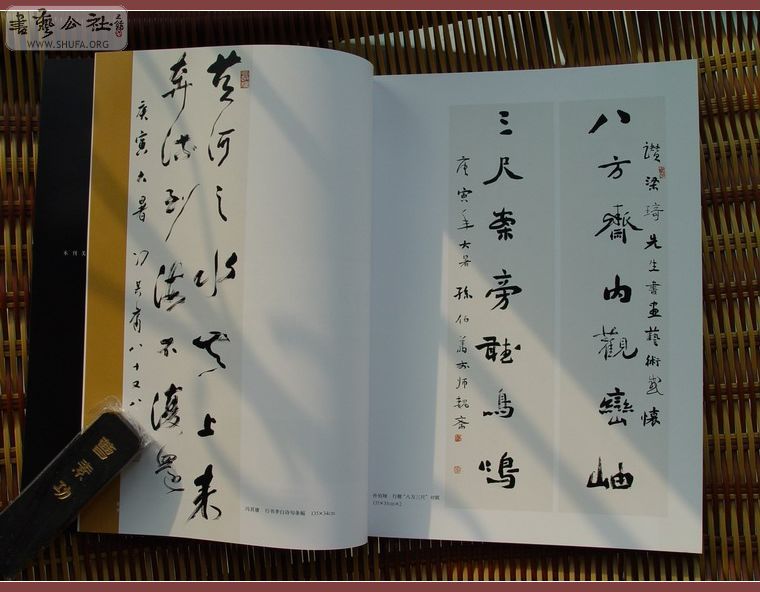 書藝公社
WWW.SHUFA.ORG
黄河之水天上来
奔流到海不復還
庚寅大暑 冯其庸八十又八
冯其庸 行书李白诗句条幅 135×34cm
讚梁琦先生書畫藝術感懷
八方齋内觀巒岫
三尺案旁聽鳥鳴
庚寅年大暑 孫伯翔於師魏齋
孙伯翔 行楷“八方三尺”对联
135×33cm×2
曹素功